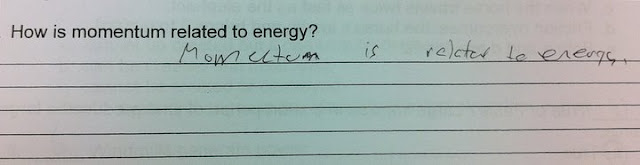 How is momentum related to energy?
Momentum is relater to energy.